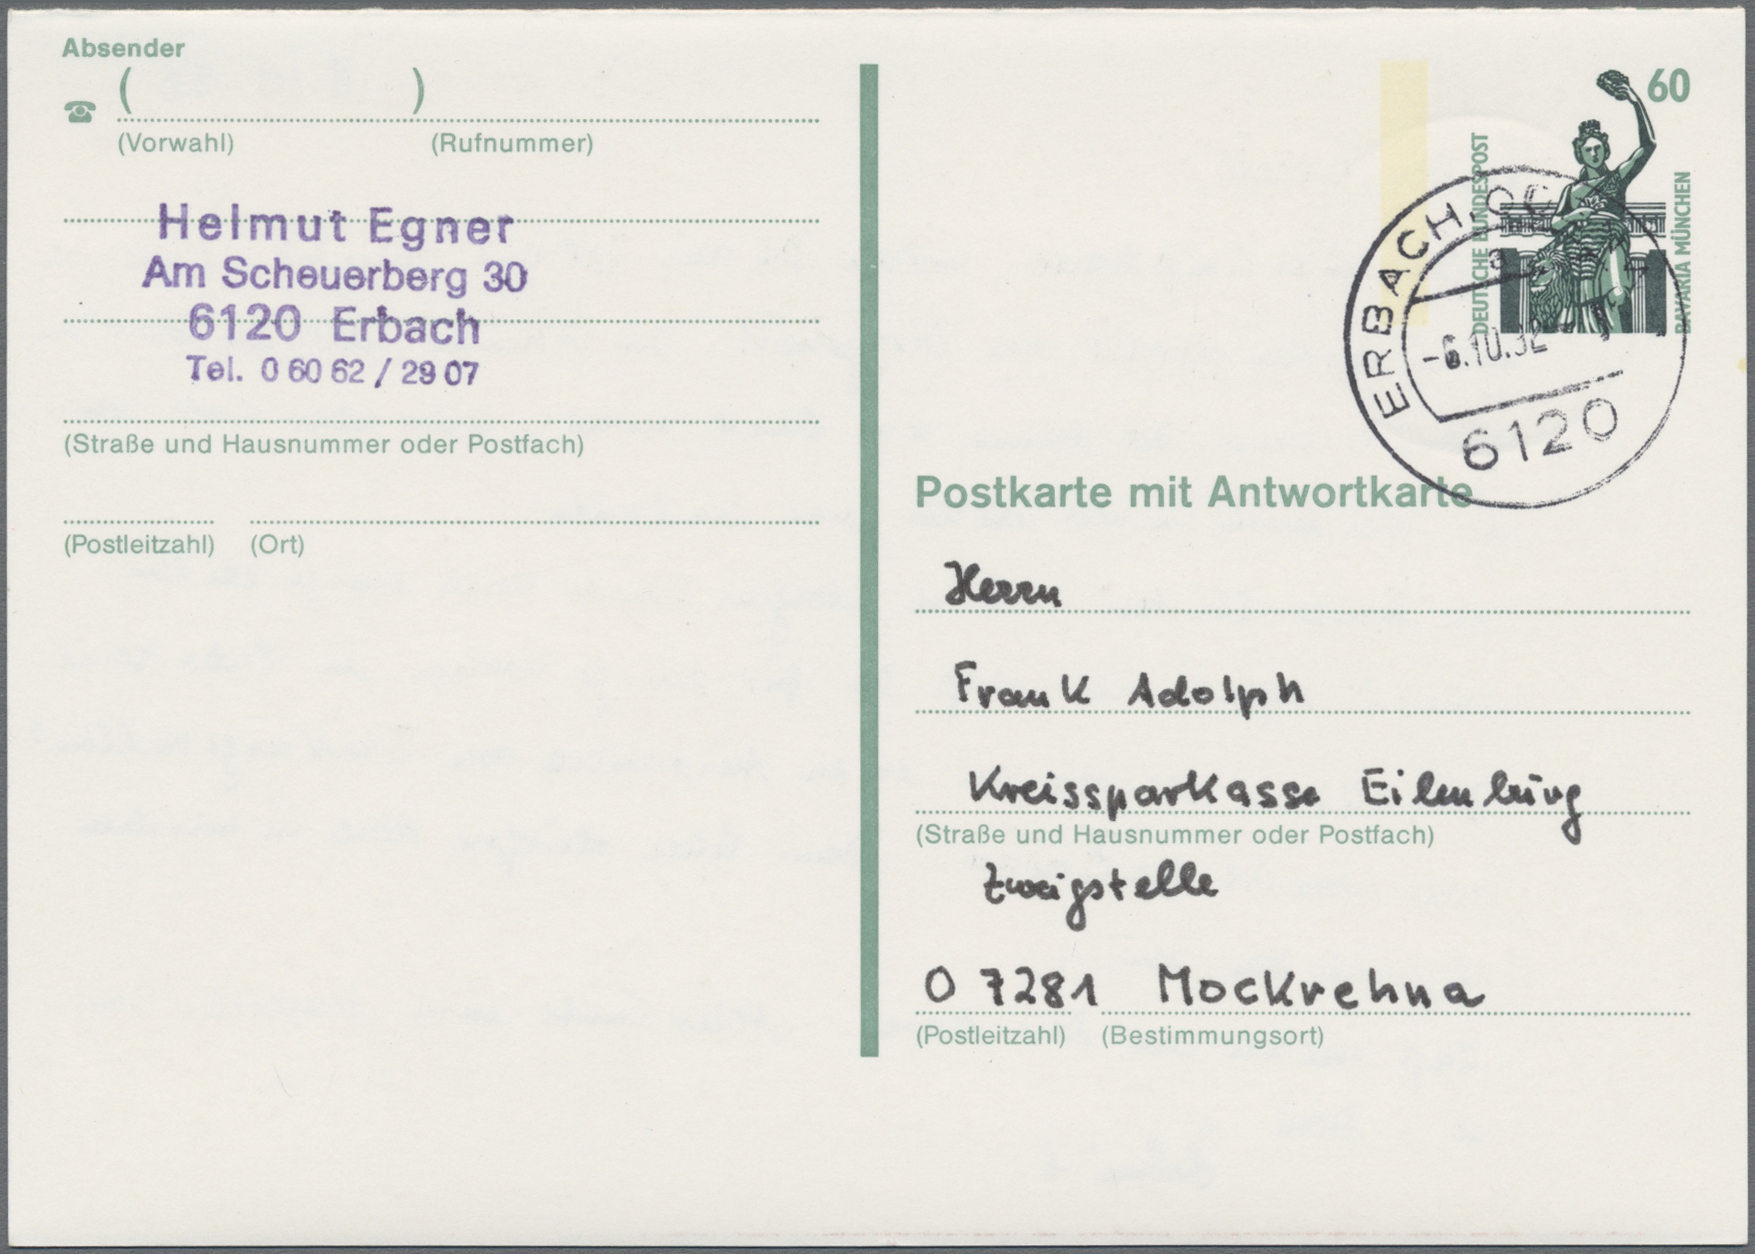 Absender
( )
(Vorwahl) (Rufnummer)
Helmut Egner
Am Scheuerberg 30
6120 Erbach
Tel. 0 60 62 / 29 07
(Straße und Hausnummer oder Postfach)
(Postleitzahl) (Ort)
60
DEUTSCHE BUNDESPOST
BAVARIA MÜNCHEN
ERBACH
-6.10.92
6120
Postkarte mit Antwortkarte
Herrn
Frank Adolph
Kreissparkasse Eilenburg
(Straße und Hausnummer oder Postfach)
Zweigstelle
O 7281 Mockrehna
(Postleitzahl) (Bestimmungsort)